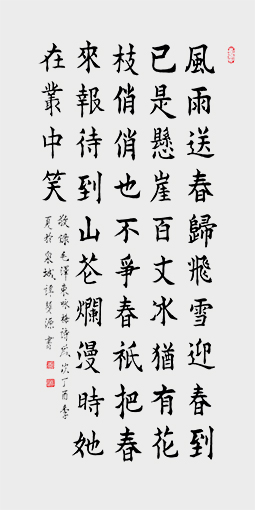 風雨送春歸飛雪迎春到
已是懸崖百丈冰猶有花
枝俏俏也不爭春祇把春
來報待到山花爛漫時她
在叢中笑
敬錄毛澤東咏梅詩歲次丁酉季
夏於泉城譚賢源書